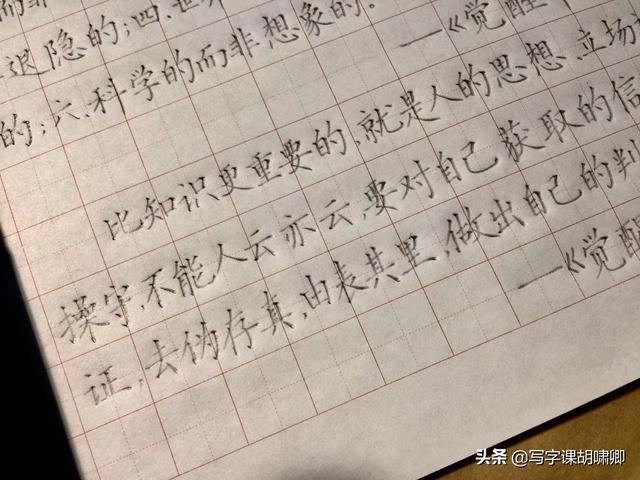 退隐的；四、世界
的；六、科学的而非想象的。
—《觉醒
比知识更重要的，就是人的思想、立场
操守，不能人云亦云，要对自己获取的信
证，去伪存真，由表其里，做出自己的判
—《觉醒
头条 @写字课胡啸卿